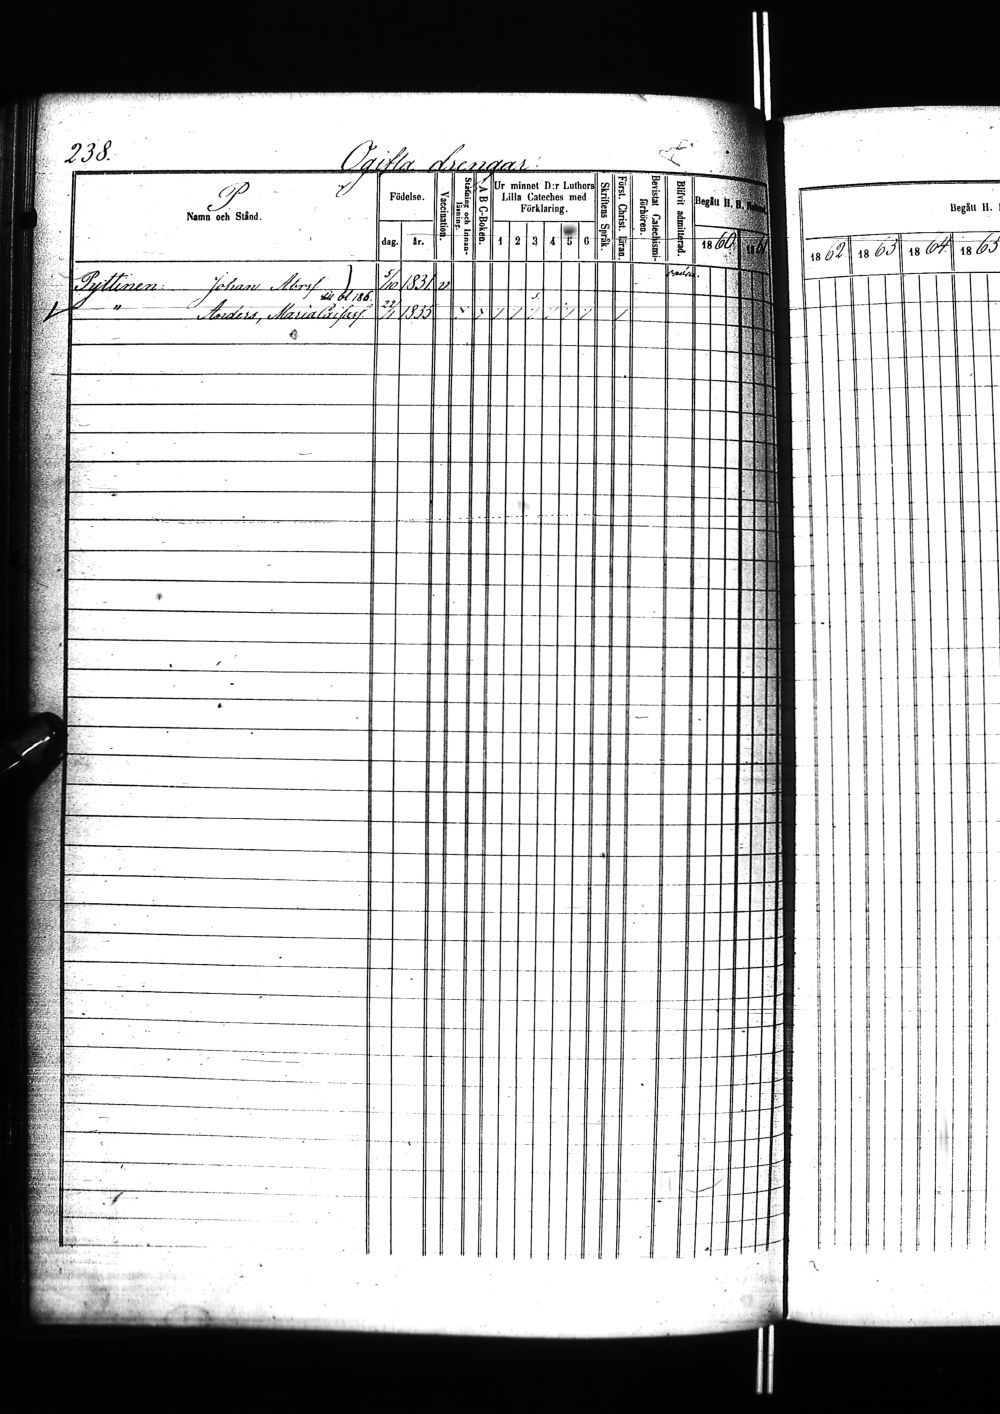 238.
Ogifta drengar
P
Namn och Stånd.
Födelse.
dag. år.
Vaccination.
Stafning och Innan-läsning.
A B C-Boken.
Ur minnet D:r Luthers
Lilla Cateches med
Förklaring.
1 2 3 4 5 6
Skriftens Språk.
Först. Christ. läran.
Bevistat Catechismi-förhören.
Blifvit admitterad.
Begått H. H. Nattvard
1860 1861
Begått H.
1862 1863 1864 1865
Pyttinen Johan Abrsf 5/10 1831 v
till bl 186.
" Anders, Maria 22/1 1835